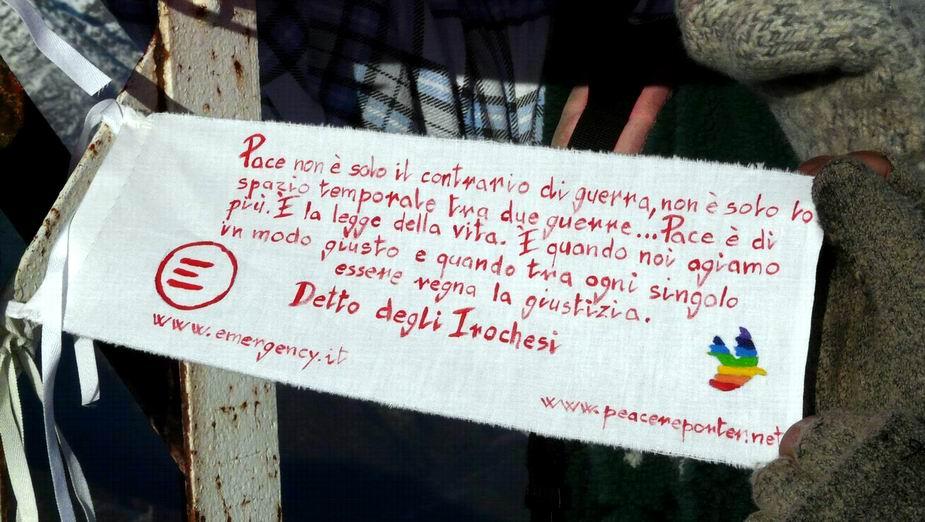 Pace non è solo il contrario di guerra, non è solo lo
spazio temporale tra due guerre... Pace è di
più. È la legge della vita. È quando noi agiamo
in modo giusto e quando tra ogni singolo
essere regna la giustizia.
Detto degli Irochesi
E
www.emergency.it
www.peacereporter.net